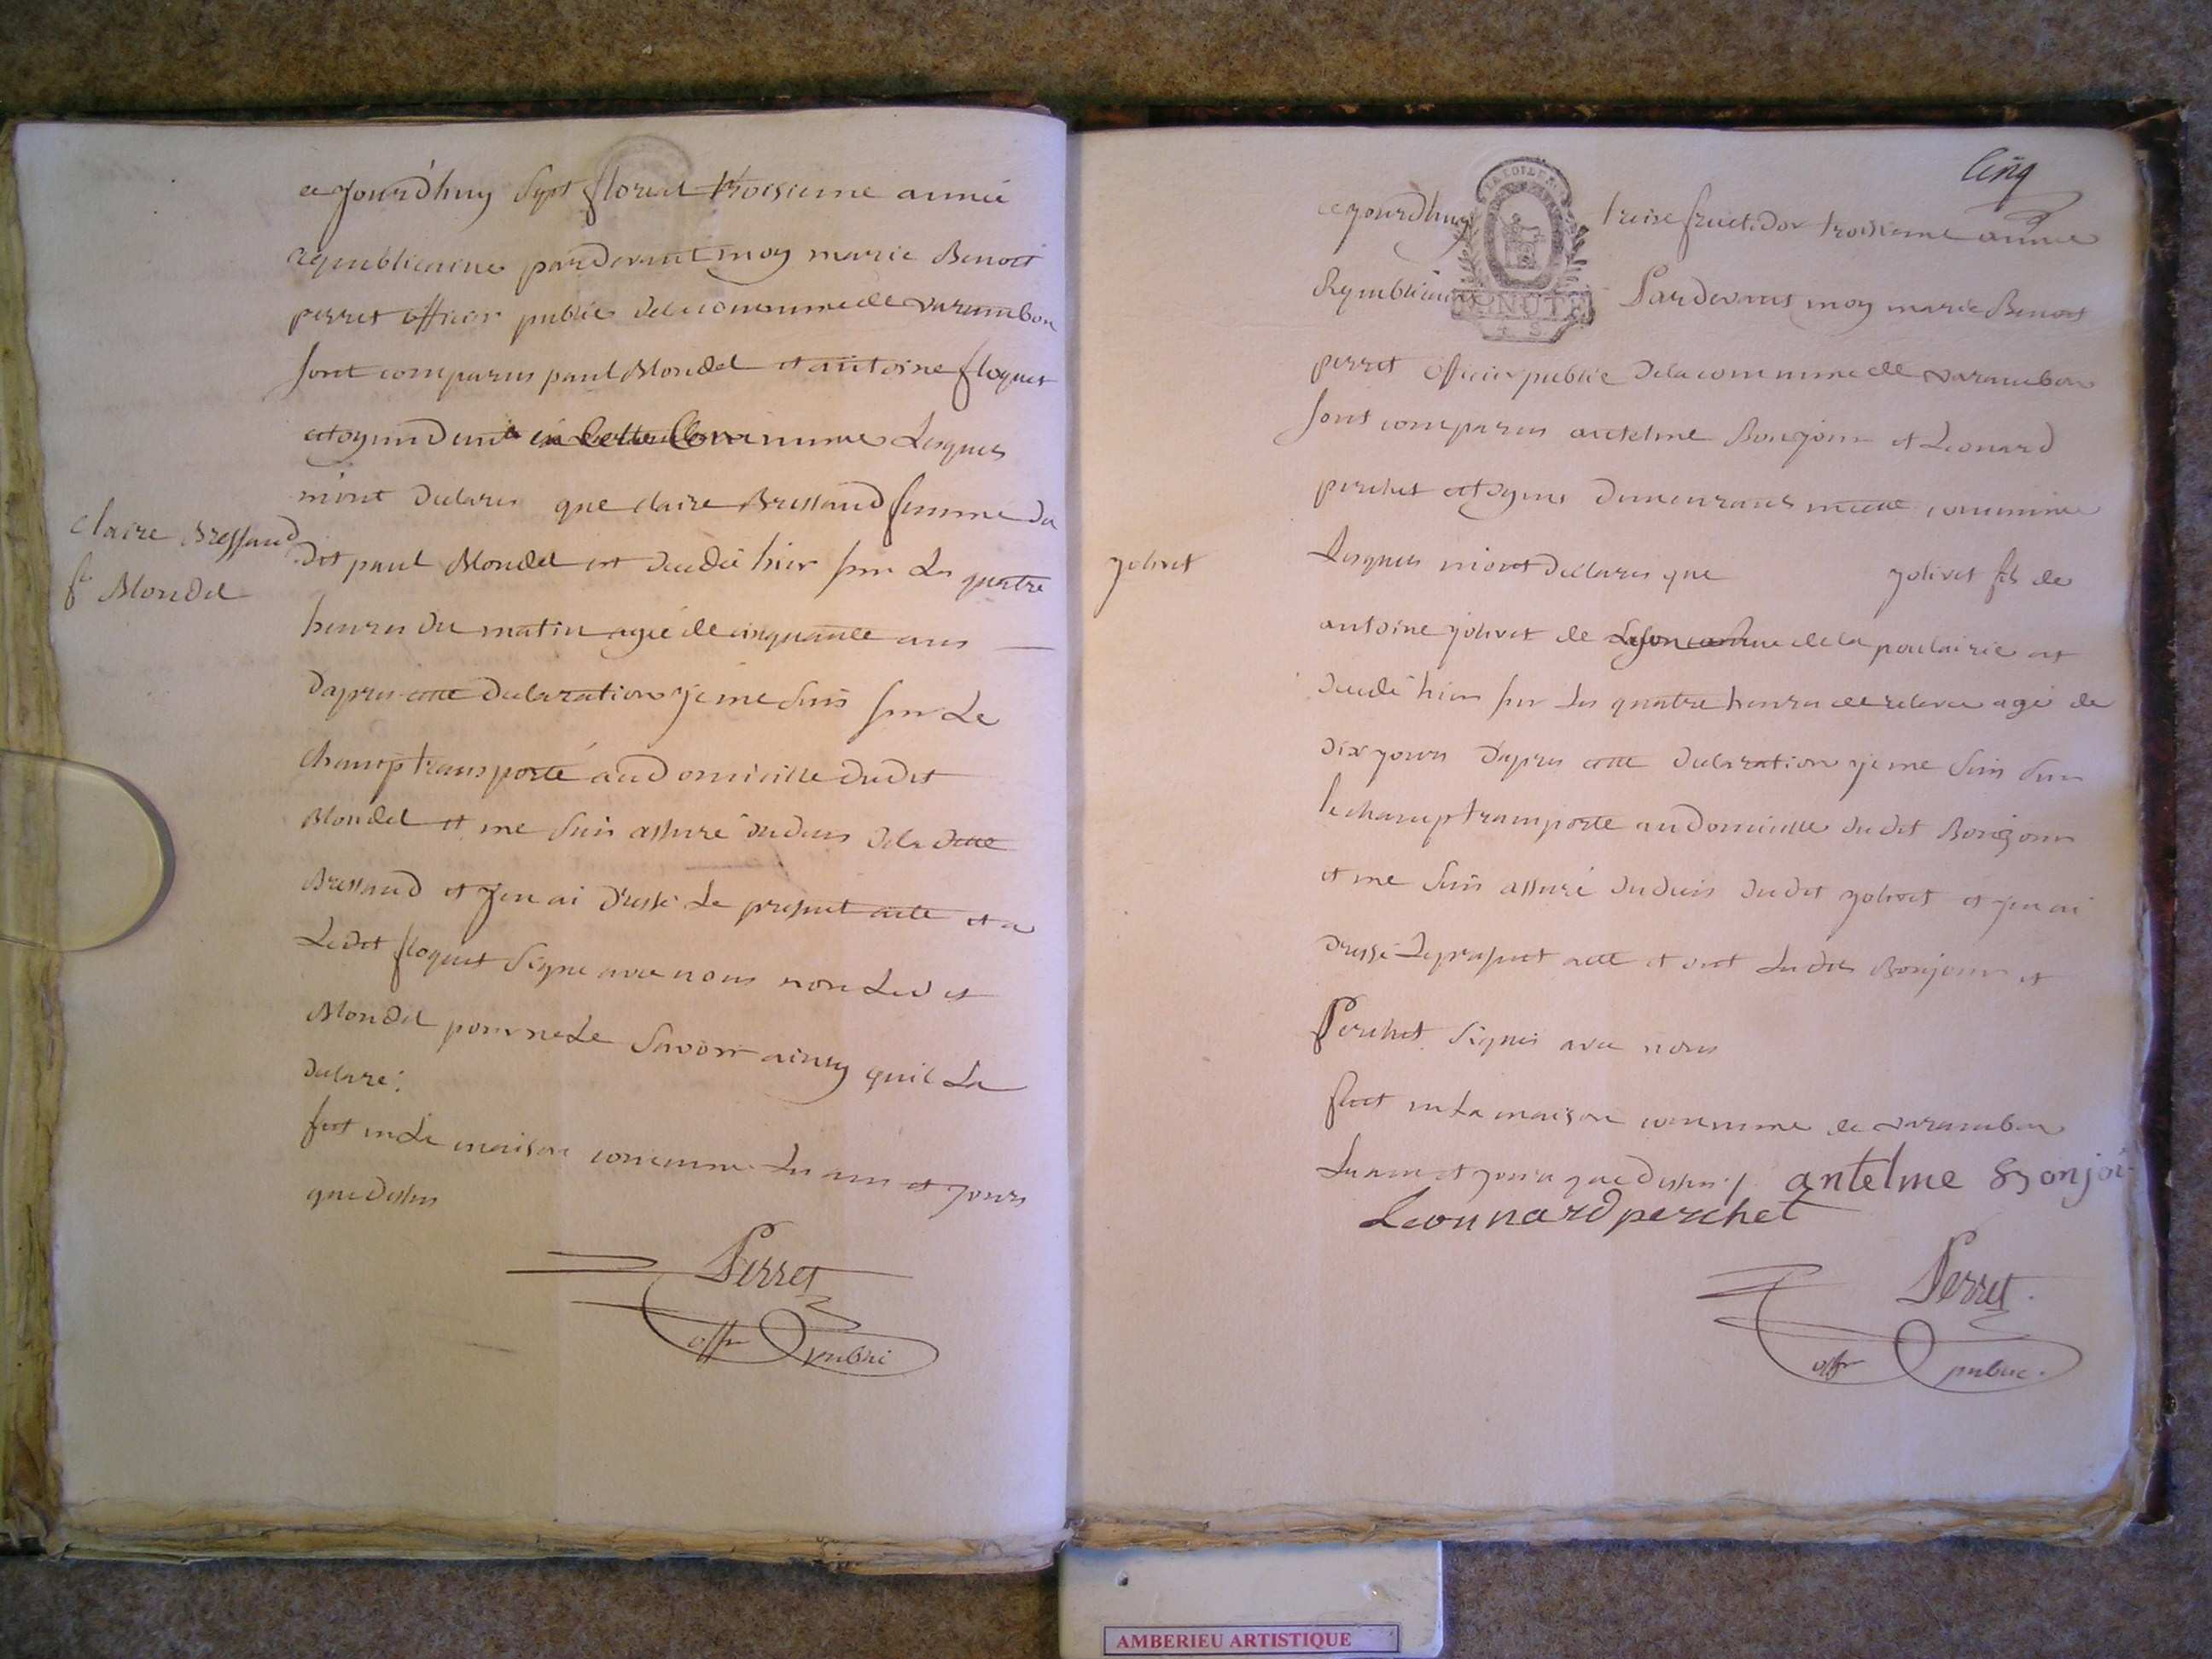 ce jourdhuy sept floreal troisieme année
republicaine pardevant moy marie Benoit
perret officier public de la commune de varambon
sont comparus paul Blondel et antoine floquet
en cette Commune Lesquels
mont declarés que claire Bressaud femme du
claire Bressaud
fe Blondel
dit paul Blondel est decedé hier sur Les quatre
heures du matin agée de cinquante ans
dapres cette declaration je me suis sur Le
champ transporté au domicille dudit
Blondel et me suis assuré du deces de la ditte
Bressaud et jen ai dressé Le present acte et a
Ledit floquet signé avec nous non Ledit
Blondel pour ne Le savoir ainsy quil La
declaré.
fait en La maison commune Les ans et jours
que dessus
Perret
offr public
Cinq
ce jourdhuy treise fructidor troisieme année
LA LOI LE R
MINUTE
4 S
Republicaine Pardevant moy marie Benoit
perret officier public de la commune de varambon
sont comparus antelme Bonjour et Leonard
perchet citoyens demeurants en cette commune
jolivet
Lesquels mont declarés que jolivet fils de
antoine jolivet de Lyon de la poulairie est
decedé hier sur Les quatre heures de relevée agé de
dix jours dapres cette declaration je me suis sur
le champ transporté au domicille dudit Bonjour
et me suis assuré du deces dudit jolivet et jen ai
dressé Le present acte et ont Lesdits Bonjour et
Perchet signés avec nous
fait en La maison commune de varambon
Les ans et jours que dessus ./. antelme Bonjour
Leonnard perchet
Perret
offr public.
AMBERIEU ARTISTIQUE